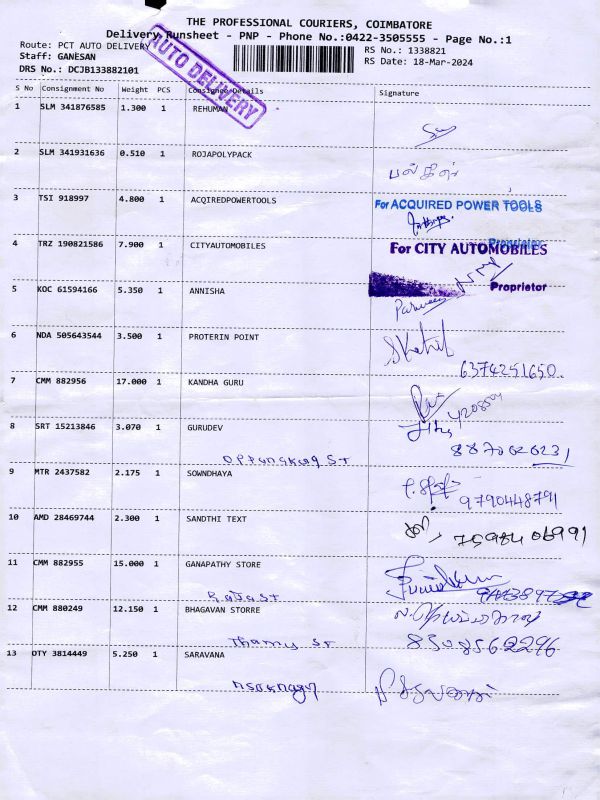 THE PROFESSIONAL COURIERS, COIMBATORE
Delivery Runsheet - PNP - Phone No.:0422-3505555 - Page No.:1
Route: PCT AUTO DELIVERY
RS No.: 1338821
Staff: GANESAN
RS Date: 18-Mar-2024
DRS No.: DCJB133882101
AUTO DELIVERY
S No Consignment No Weight PCS Consignee Details Signature
1 SLM 341876585 1.300 1 REHUMAN
2 SLM 341931636 0.510 1 ROJAPOLYPACK
3 TSI 918997 4.800 1 ACQIREDPOWERTOOLS
For ACQUIRED POWER TOOLS
Proprietor
4 TRZ 190821586 7.900 1 CITYAUTOMOBILES
For CITY AUTOMOBILES
Proprietor
5 KOC 61594166 5.350 1 ANNISHA
6 NDA 505643544 3.500 1 PROTERIN POINT
6374251650.
7 CMM 882956 17.000 1 KANDHA GURU
8 SRT 15213846 3.070 1 GURUDEV
8870206231
9 MTR 2437582 2.175 1 SOWNDHAYA
9790448791
10 AMD 28469744 2.300 1 SANDTHI TEXT
7598406991
11 CMM 882955 15.000 1 GANAPATHY STORE
Raja St
12 CMM 880249 12.150 1 BHAGAVAN STORRE
8508562296
13 OTY 3814449 5.250 1 SARAVANA